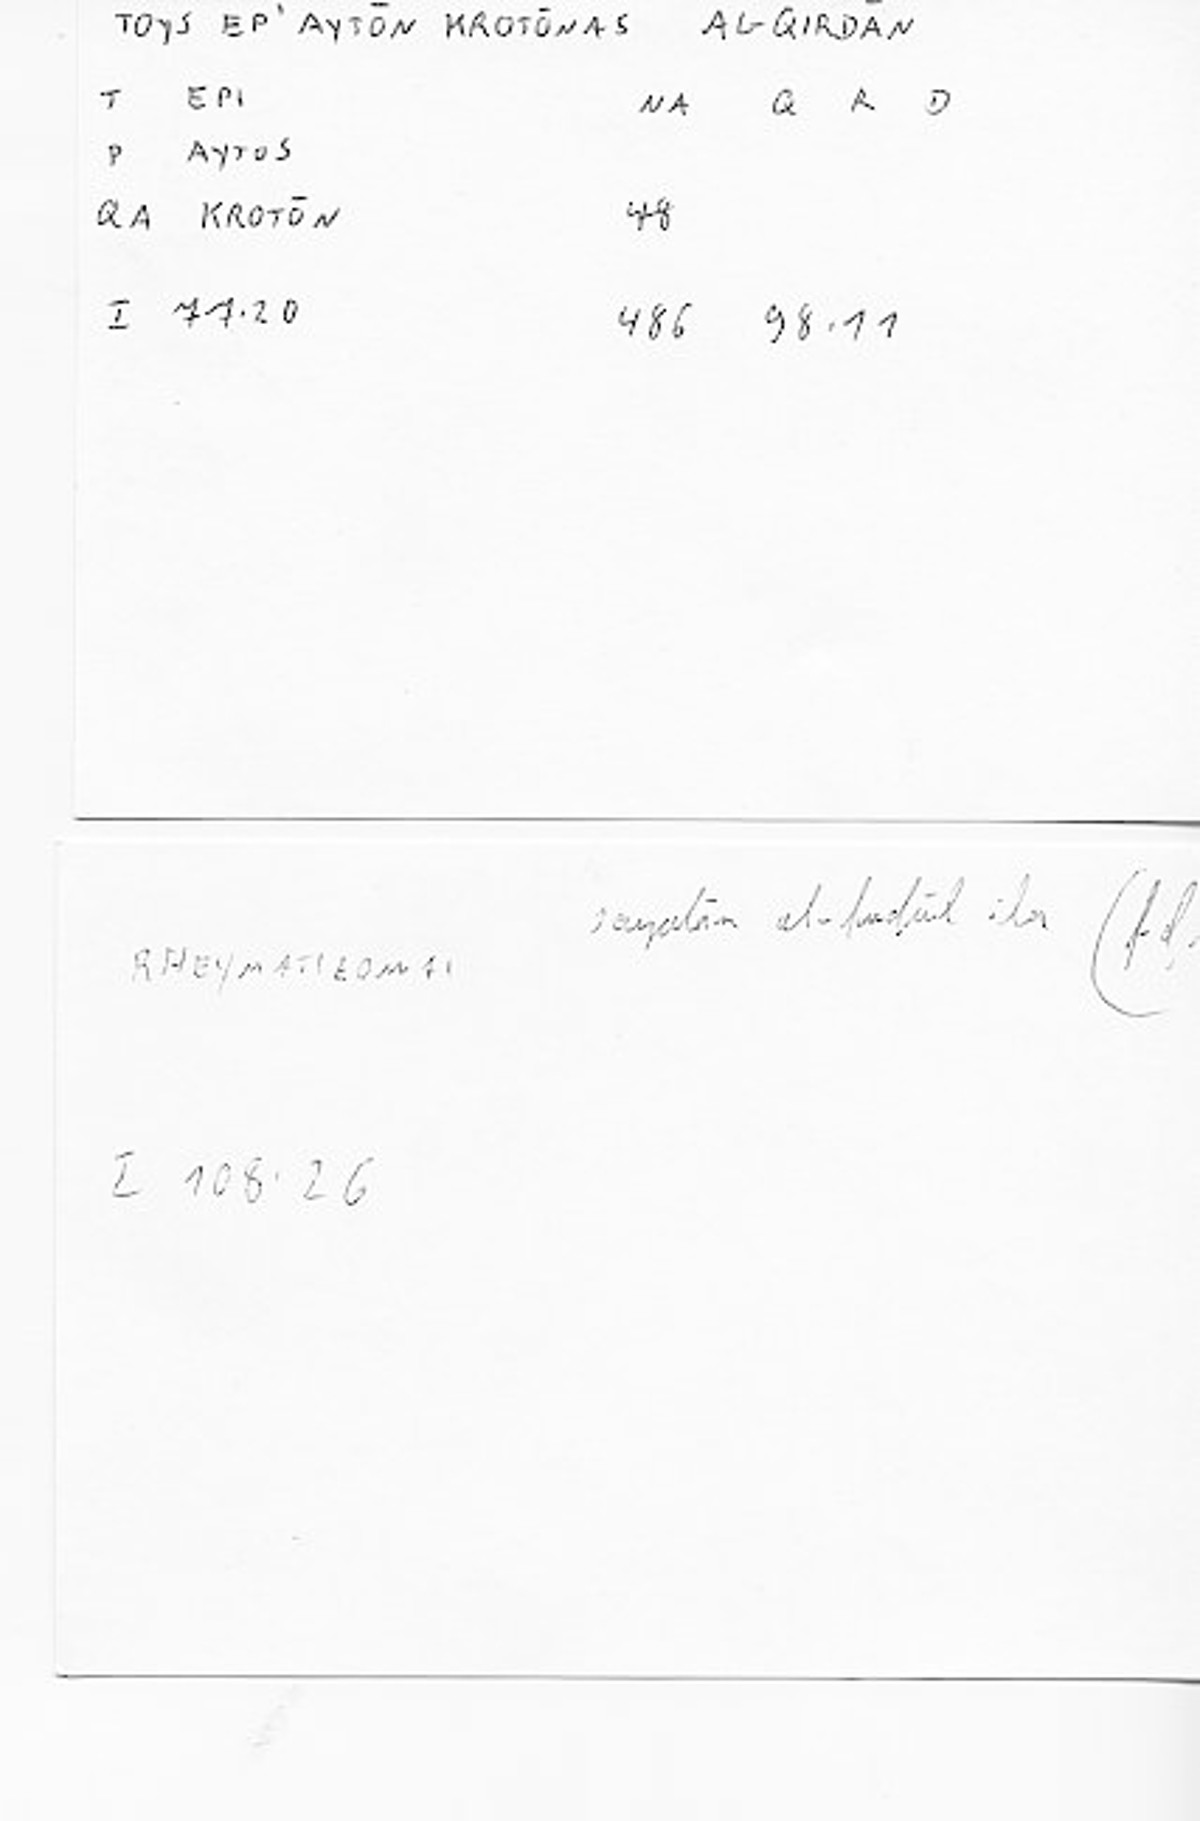 TOYS EP' AYTŌN KROTŌNAS AL-QIRDĀN
T EPI NA Q R D
P AYTOS
QA KROTŌN 48
I 77.20 486 98.11
al- ila
RHEYMATIZOMAI
I 108.26